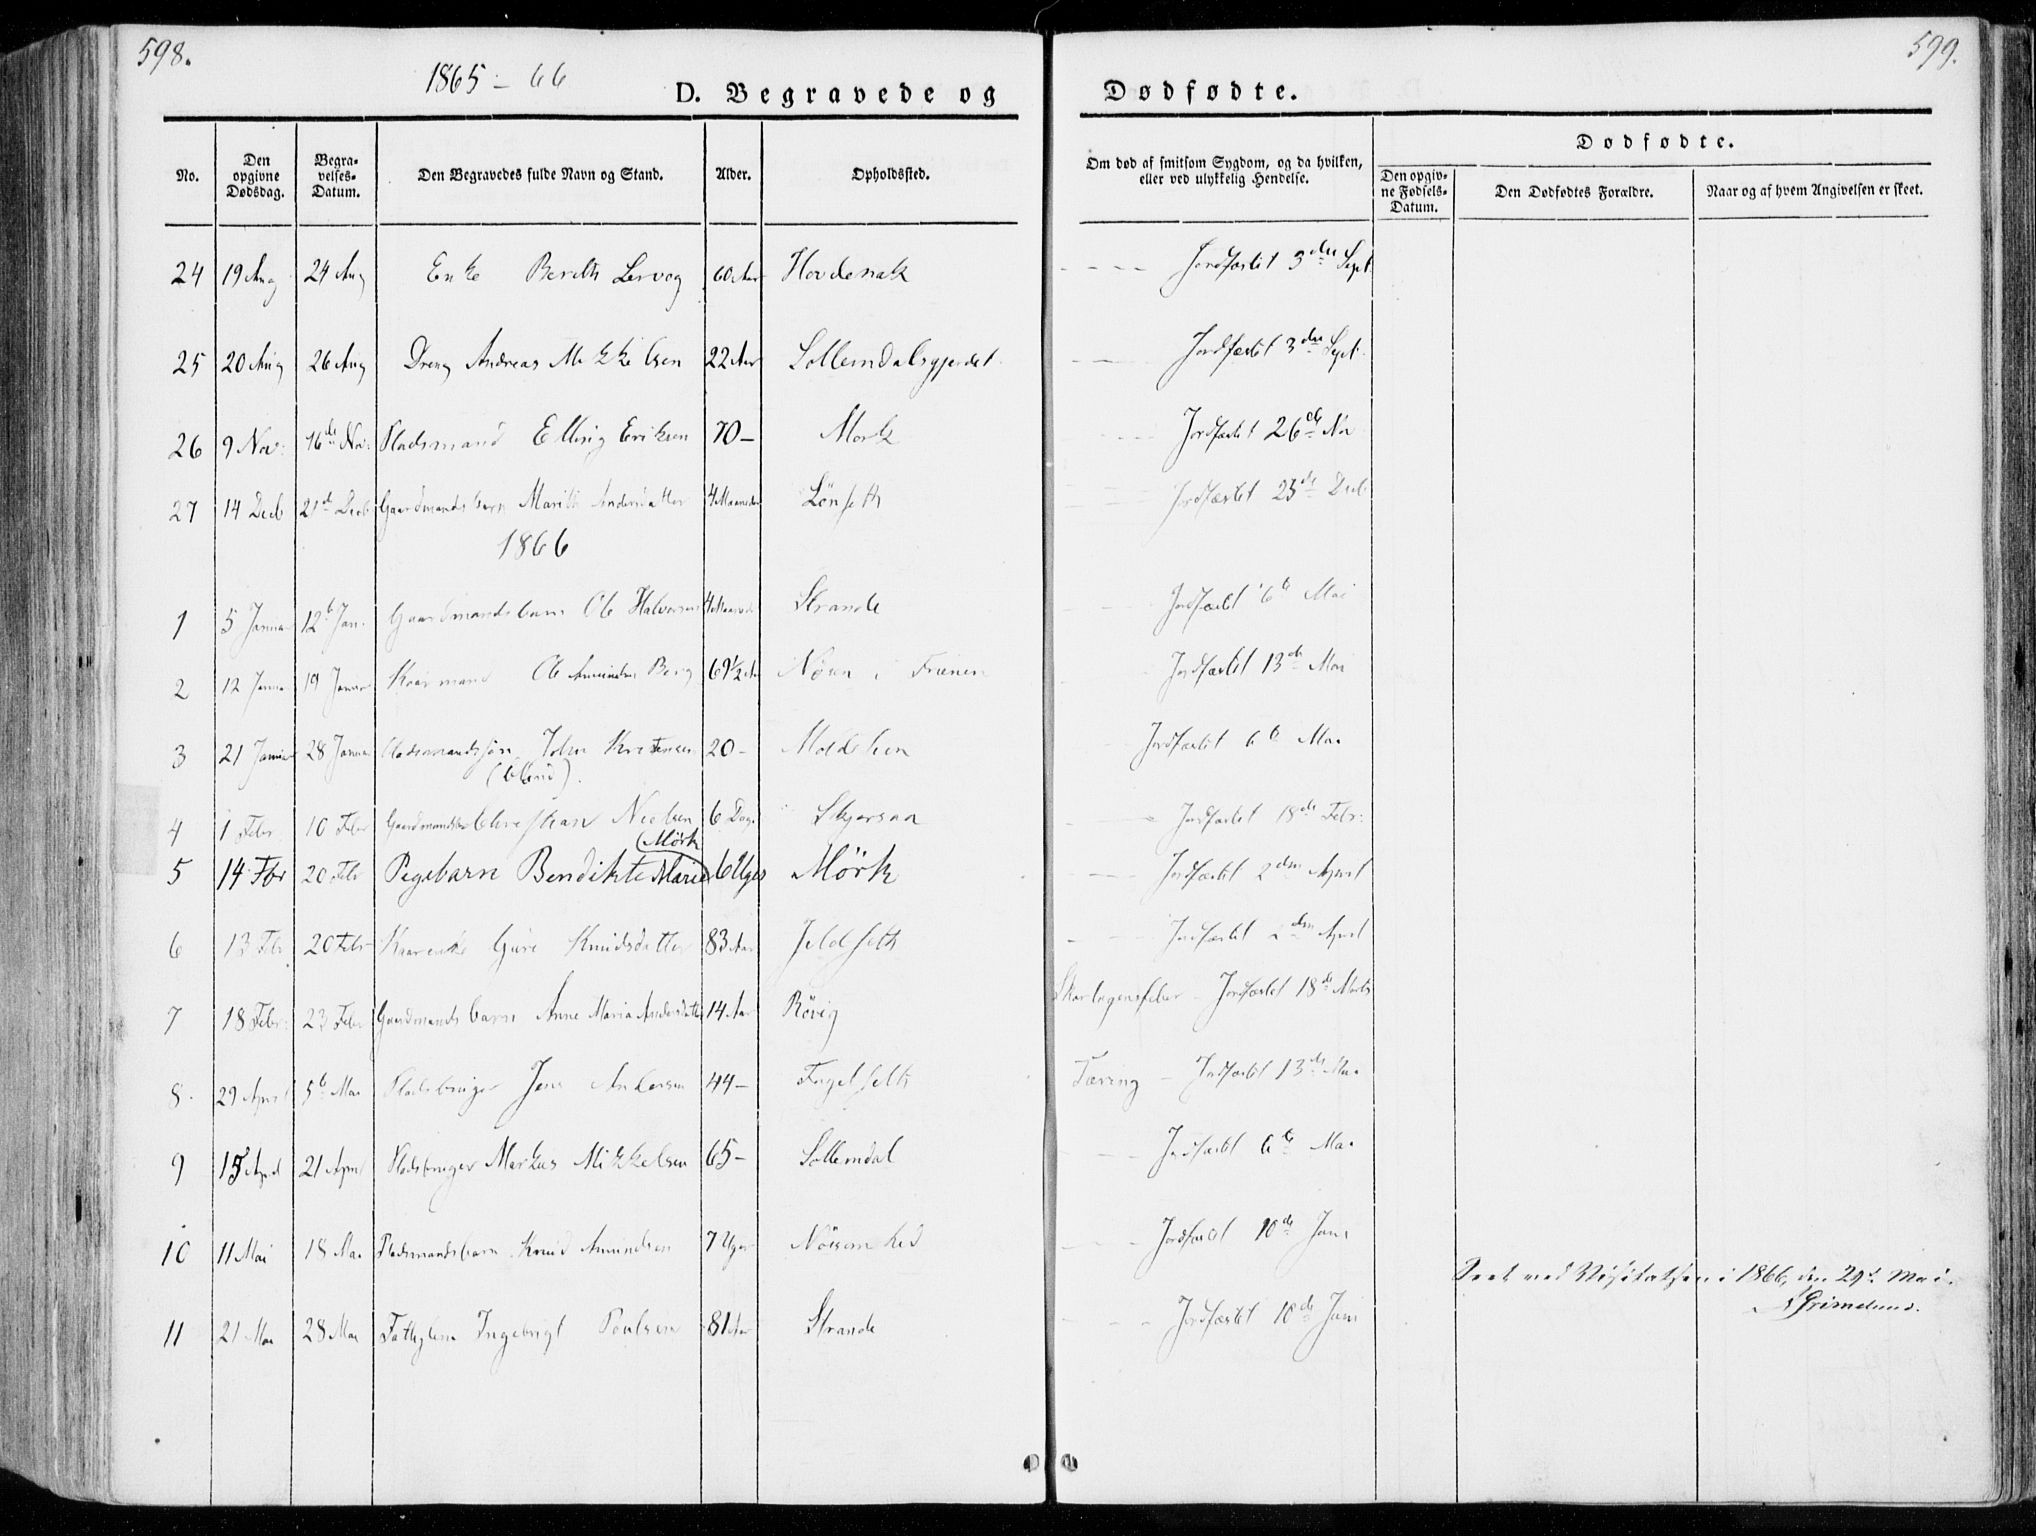 598.
599.
1865 - 66
D. Begravede og
Dødfødte.
No.
Den opgivne Dødsdag.
Begravelses-Datum.
Den Begravedes fulde Navn og Stand.
Alder.
Opholdssted.
Om død af smitsom Sygdom, og da hvilken, eller ved ulykkelig Hendelse.
Dødfødte.
Den opgivne Fødsels-Datum.
Den Dødfødtes Forældre.
Naar og af hvem Angivelsen er skeet.
24 19 Aug 24 Aug Enke Berethe Lervog 60 Aar Hovdenak - - - - Jordfæstet 3die Sept.
25 20 Aug 26 Aug Dreng Andreas Mikkelsen 22 Aar Sollemdalsgjerdet - - - Jordfæstet 3die Sept.
26 9 Nov: 16de Nov: Pladsmand Elling Eriksen 70 - Mork Jordfæstet 26de Nov
27 14 Decb 21de Decb Gaardmandsbarn Marith Andersdatter 4 Maaneder Lönseth Jordfæstet 25de Decb
1866
1 5 Januar 12te Jan. Gaardmandsbarn Ole Halvorsen 4 Maaneder Strande Jordfæstet 6te Mai
2 12 Januar 19 Januar Kaarmand Ole Amundsen Berg 69½ Aar Nøsen i Frænen Jordfæstet 13de Mai
3 21 Januar 28 Januar Pladsmandssøn John Kristensen 20 - Moldelien Jordfæstet 6te Mai
(blind).
4 1 Febr. 10 Febr Gaardmandsbarn Christian Nielsen 6 Dage Skjorsaa Jordfæstet 18de Febr:
Mørk
5 14 Fbr 20 Febr Pigebarn Bendikte Marie 6 Uger Mörk Jordfæstet 2den April
6 13 Febr 20 Febr Kaarenke Guri Knudsdatter 83 Aar Jeldseth Jordfæstet 2den April
7 18 Febr: 23 Febr Gaardmandsbarn Anne Maria Andersdatter 14 Aar Rövig Skarlagensfeber - Jordfæstet 18de Marts
8 29 April 5te Mai Pladsbruger Jens Andersen 44 - Fugelseth Tæring - Jordfæstet 13de Mai
9 15 April 21 April Pladsbruger Markus Mikkelsen 65 - Sollemdal Jordfæstet 6te Mai
10 11 Mai 18 Mai Pladsmandsbarn Knud Amundsen 7 Uger Jordfæstet 10de Juni
Seet ved Visitatsen i 1866, den 29de Mai.
Grimelund.
11 21 Mai 28 Mai Fattiglem Ingebrigt Poulsen 81 Aar Strande Jordfæstet 10de Juni